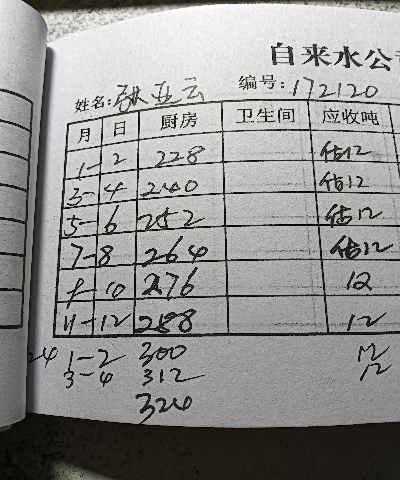 自来水公
姓名: 张亚云 编号: 172120
月 日 厨房 卫生间 应收吨
1-2 228 估12
3-4 240 估12
5-6 252 估12
7-8 264 估12
9-10 276 12
11-12 288 12
24 1-2 300 12
3-4 312 12
324